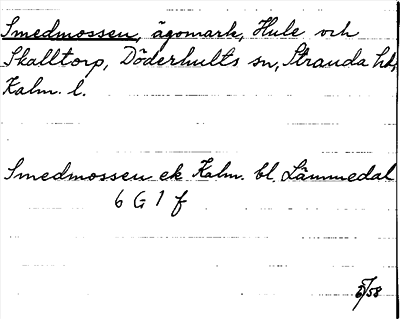 Smedmossen, ägomark, Hule och
Skalltorp, Döderhults sn, Stranda hd,
Kalm. l.
Smedmossen ek Kalm. bl. Lämmedal
6 G 1 f
5/58